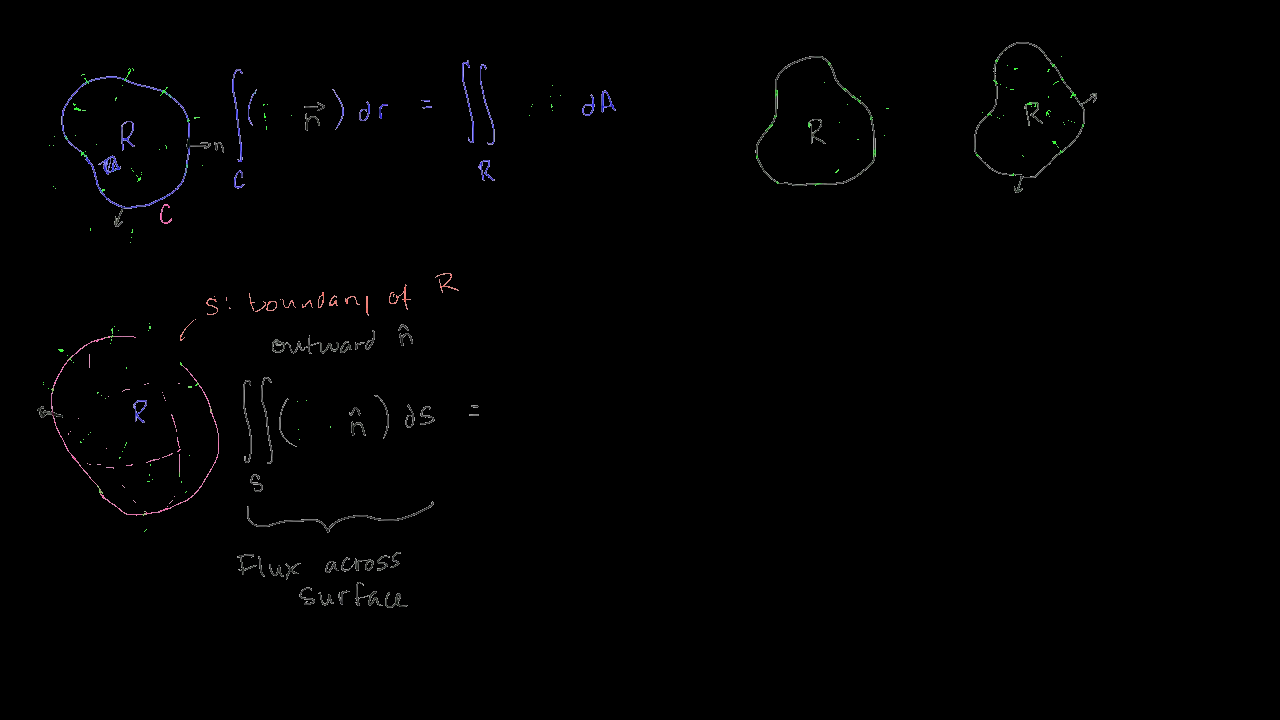 R
n
C
∫_C ( · n⃗ ) dr = ∬_R dA
R
R
S: boundary of R
outward n̂
R
∬_S ( · n̂ ) dS =
Flux across
surface